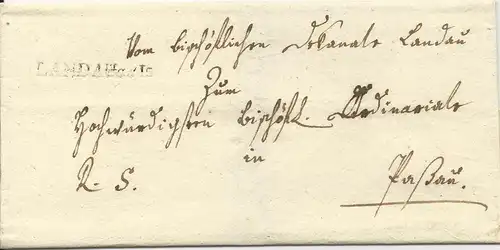 Vom bischöflichen Dekanate Landau
LANDAU
Zum
Hochwürdigsten Bischöfl. Ordinariate
in
R. S. Paßau.